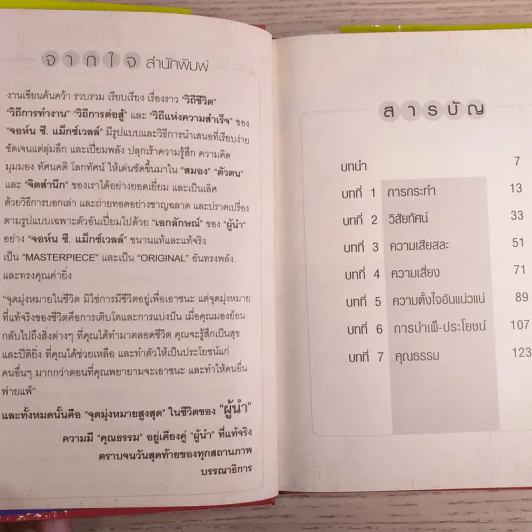 จากใจ สำนักพิมพ์
งานเขียนค้นคว้า รวบรวม เรียบเรียง เรื่องราว "วิถีชีวิต"
"วิถีการทำงาน" "วิถีการต่อสู้" และ "วิถีแห่งความสำเร็จ" ของ
"จอห์น ซี. แม็กซ์เวลล์" มีรูปแบบและวิธีการนำเสนอที่เรียบง่าย
ชัดเจนแต่ลุ่มลึก และเปี่ยมพลัง ปลุกเร้าความรู้สึก ความคิด
มุมมอง ทัศนคติ โลกทัศน์ ให้เด่นชัดขึ้นมาใน "สมอง" "ตัวตน"
และ "จิตสำนึก" ของเราได้อย่างยอดเยี่ยม และเป็นเลิศ
ด้วยวิธีการบอกเล่า และถ่ายทอดอย่างชาญฉลาด และปราดเปรื่อง
ตามรูปแบบเฉพาะตัวอันเปี่ยมไปด้วย "เอกลักษณ์" ของ "ผู้นำ"
อย่าง "จอห์น ซี. แม็กซ์เวลล์" ขนานแท้และแท้จริง
เป็น "MASTERPIECE" และเป็น "ORIGINAL" อันทรงพลัง
และทรงคุณค่ายิ่ง
"จุดมุ่งหมายในชีวิต มิใช่การมีชีวิตอยู่เพื่อเอาชนะ แต่จุดมุ่งหมาย
ที่แท้จริงของชีวิตคือการเติบโตและการแบ่งปัน เมื่อคุณมองย้อน
กลับไปถึงสิ่งต่างๆ ที่คุณได้ทำมาตลอดชีวิต คุณจะรู้สึกเป็นสุข
และปีติยิ่ง ที่คุณได้ช่วยเหลือ และทำตัวให้เป็นประโยชน์แก่
คนอื่นๆ มากกว่าตอนที่คุณพยายามจะเอาชนะ และทำให้คนอื่น
พ่ายแพ้"
และทั้งหมดนั้นคือ "จุดมุ่งหมายสูงสุด" ในชีวิตของ "ผู้นำ"
ความมี "คุณธรรม" อยู่เคียงคู่ "ผู้นำ" ที่แท้จริง
ตราบจนวันสุดท้ายของทุกสถานภาพ
บรรณาธิการ
สารบัญ
บทนำ 7
บทที่ 1 การกระทำ 13
บทที่ 2 วิสัยทัศน์ 33
บทที่ 3 ความเสียสละ 51
บทที่ 4 ความเสี่ยง 71
บทที่ 5 ความตั้งใจอันแน่วแน่ 89
บทที่ 6 การบำเพ็ญประโยชน์ 107
บทที่ 7 คุณธรรม 123